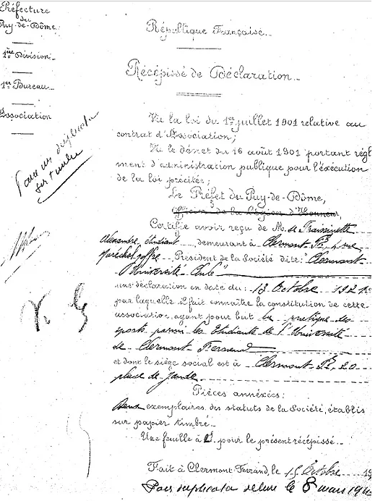 Préfecture
du
Puy-de-Dôme
1ère Division
1er Bureau
Association
République Française
Récépissé de Déclaration
Pour un duplicata
sur timbre
Vu la loi du 1er juillet 1901 relative au
contrat d'Association;
Vu le décret du 16 août 1901 portant règle
ment d'administration publique pour l'exécution
de la loi précitée;
Le Préfet du Puy-de-Dôme,
Officier de la Légion d'Honneur
Certifie avoir reçu de M. de
étudiant demeurant à Clermont Fd
Président de la Société dite: Clermont-
Université Club
une déclaration en date du: 13 Octobre
par laquelle il fait connaître la constitution de cette
association, ayant pour but la pratique des
sports parmi les étudiants de l'Université
de Clermont Ferrand
et dont le siège social est à Clermont-Fd. 20
place de Jaude
Pièces annexées:
Deux exemplaires des statuts de la Société, établis
sur papier timbre.
Une feuille à pour le présent récépissé
Fait à Clermont Ferrand, le 15 Octobre
Pour duplicata délivré le 8 mars